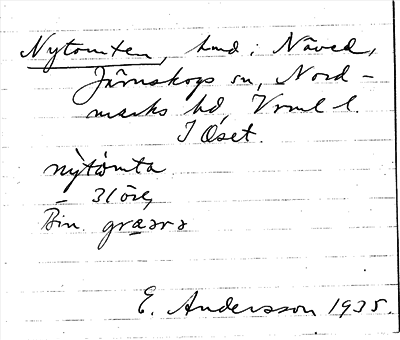 Nytomten, hmd i Näved,
Järnskogs sn, Nord-
marks hd, Vrml l.
I Öset.
nỳtòmta
Bin. græsrs
E. Andersson 1935.